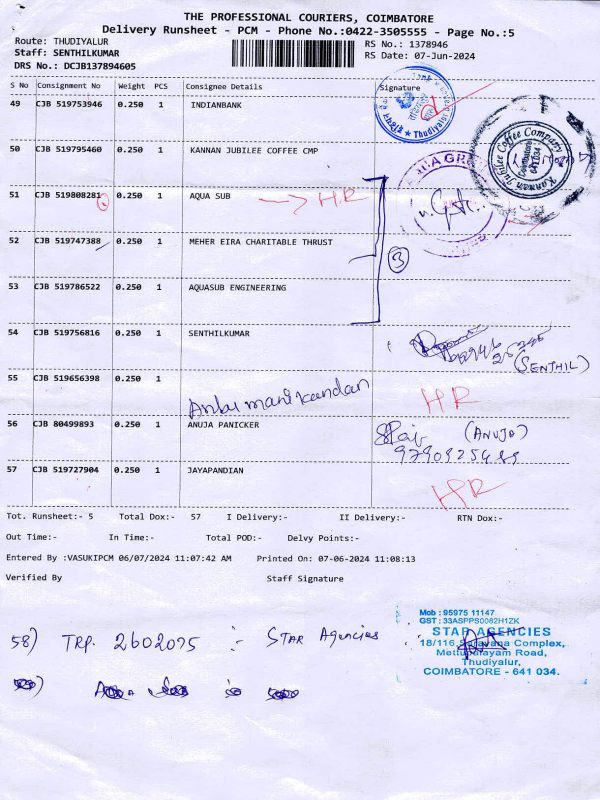 THE PROFESSIONAL COURIERS, COIMBATORE
Delivery Runsheet - PCM - Phone No.:0422-3505555 - Page No.:5
Route: THUDIYALUR
RS No.: 1378946
Staff: SENTHILKUMAR
RS Date: 07-Jun-2024
DRS No.: DCJB137894605
S No Consignment No Weight PCS Consignee Details Signature
49 CJB 519753946 0.250 1 INDIANBANK
Thudiyalur
50 CJB 519795460 0.250 1 KANNAN JUBILEE COFFEE CMP
Kannan Jubilee Coffee Company
51 CJB 519808281 0.250 1 AQUA SUB HR
52 CJB 519747388 0.250 1 MEHER EIRA CHARITABLE THRUST
3
53 CJB 519786522 0.250 1 AQUASUB ENGINEERING
54 CJB 519756816 0.250 1 SENTHILKUMAR
(SENTHIL)
55 CJB 519656398 0.250 1
Anbu manikandan HR
56 CJB 80499893 0.250 1 ANUJA PANICKER
(ANUJA)
57 CJB 519727904 0.250 1 JAYAPANDIAN
HR
Tot. Runsheet:- 5 Total Dox:- 57 I Delivery:- II Delivery:- RTN Dox:-
Out Time:- In Time:- Total POD:- Delvy Points:-
Entered By :VASUKIPCM 06/07/2024 11:07:42 AM Printed On: 07-06-2024 11:08:13
Verified By Staff Signature
58) TRP. 2602075 :- STAR Agencies
Mob : 95975 11147
GST : 33ASPPS0062H1ZK
STAR AGENCIES
18/116 Saravana Complex,
Mettupalayam Road,
Thudiyalur,
COIMBATORE - 641 034.